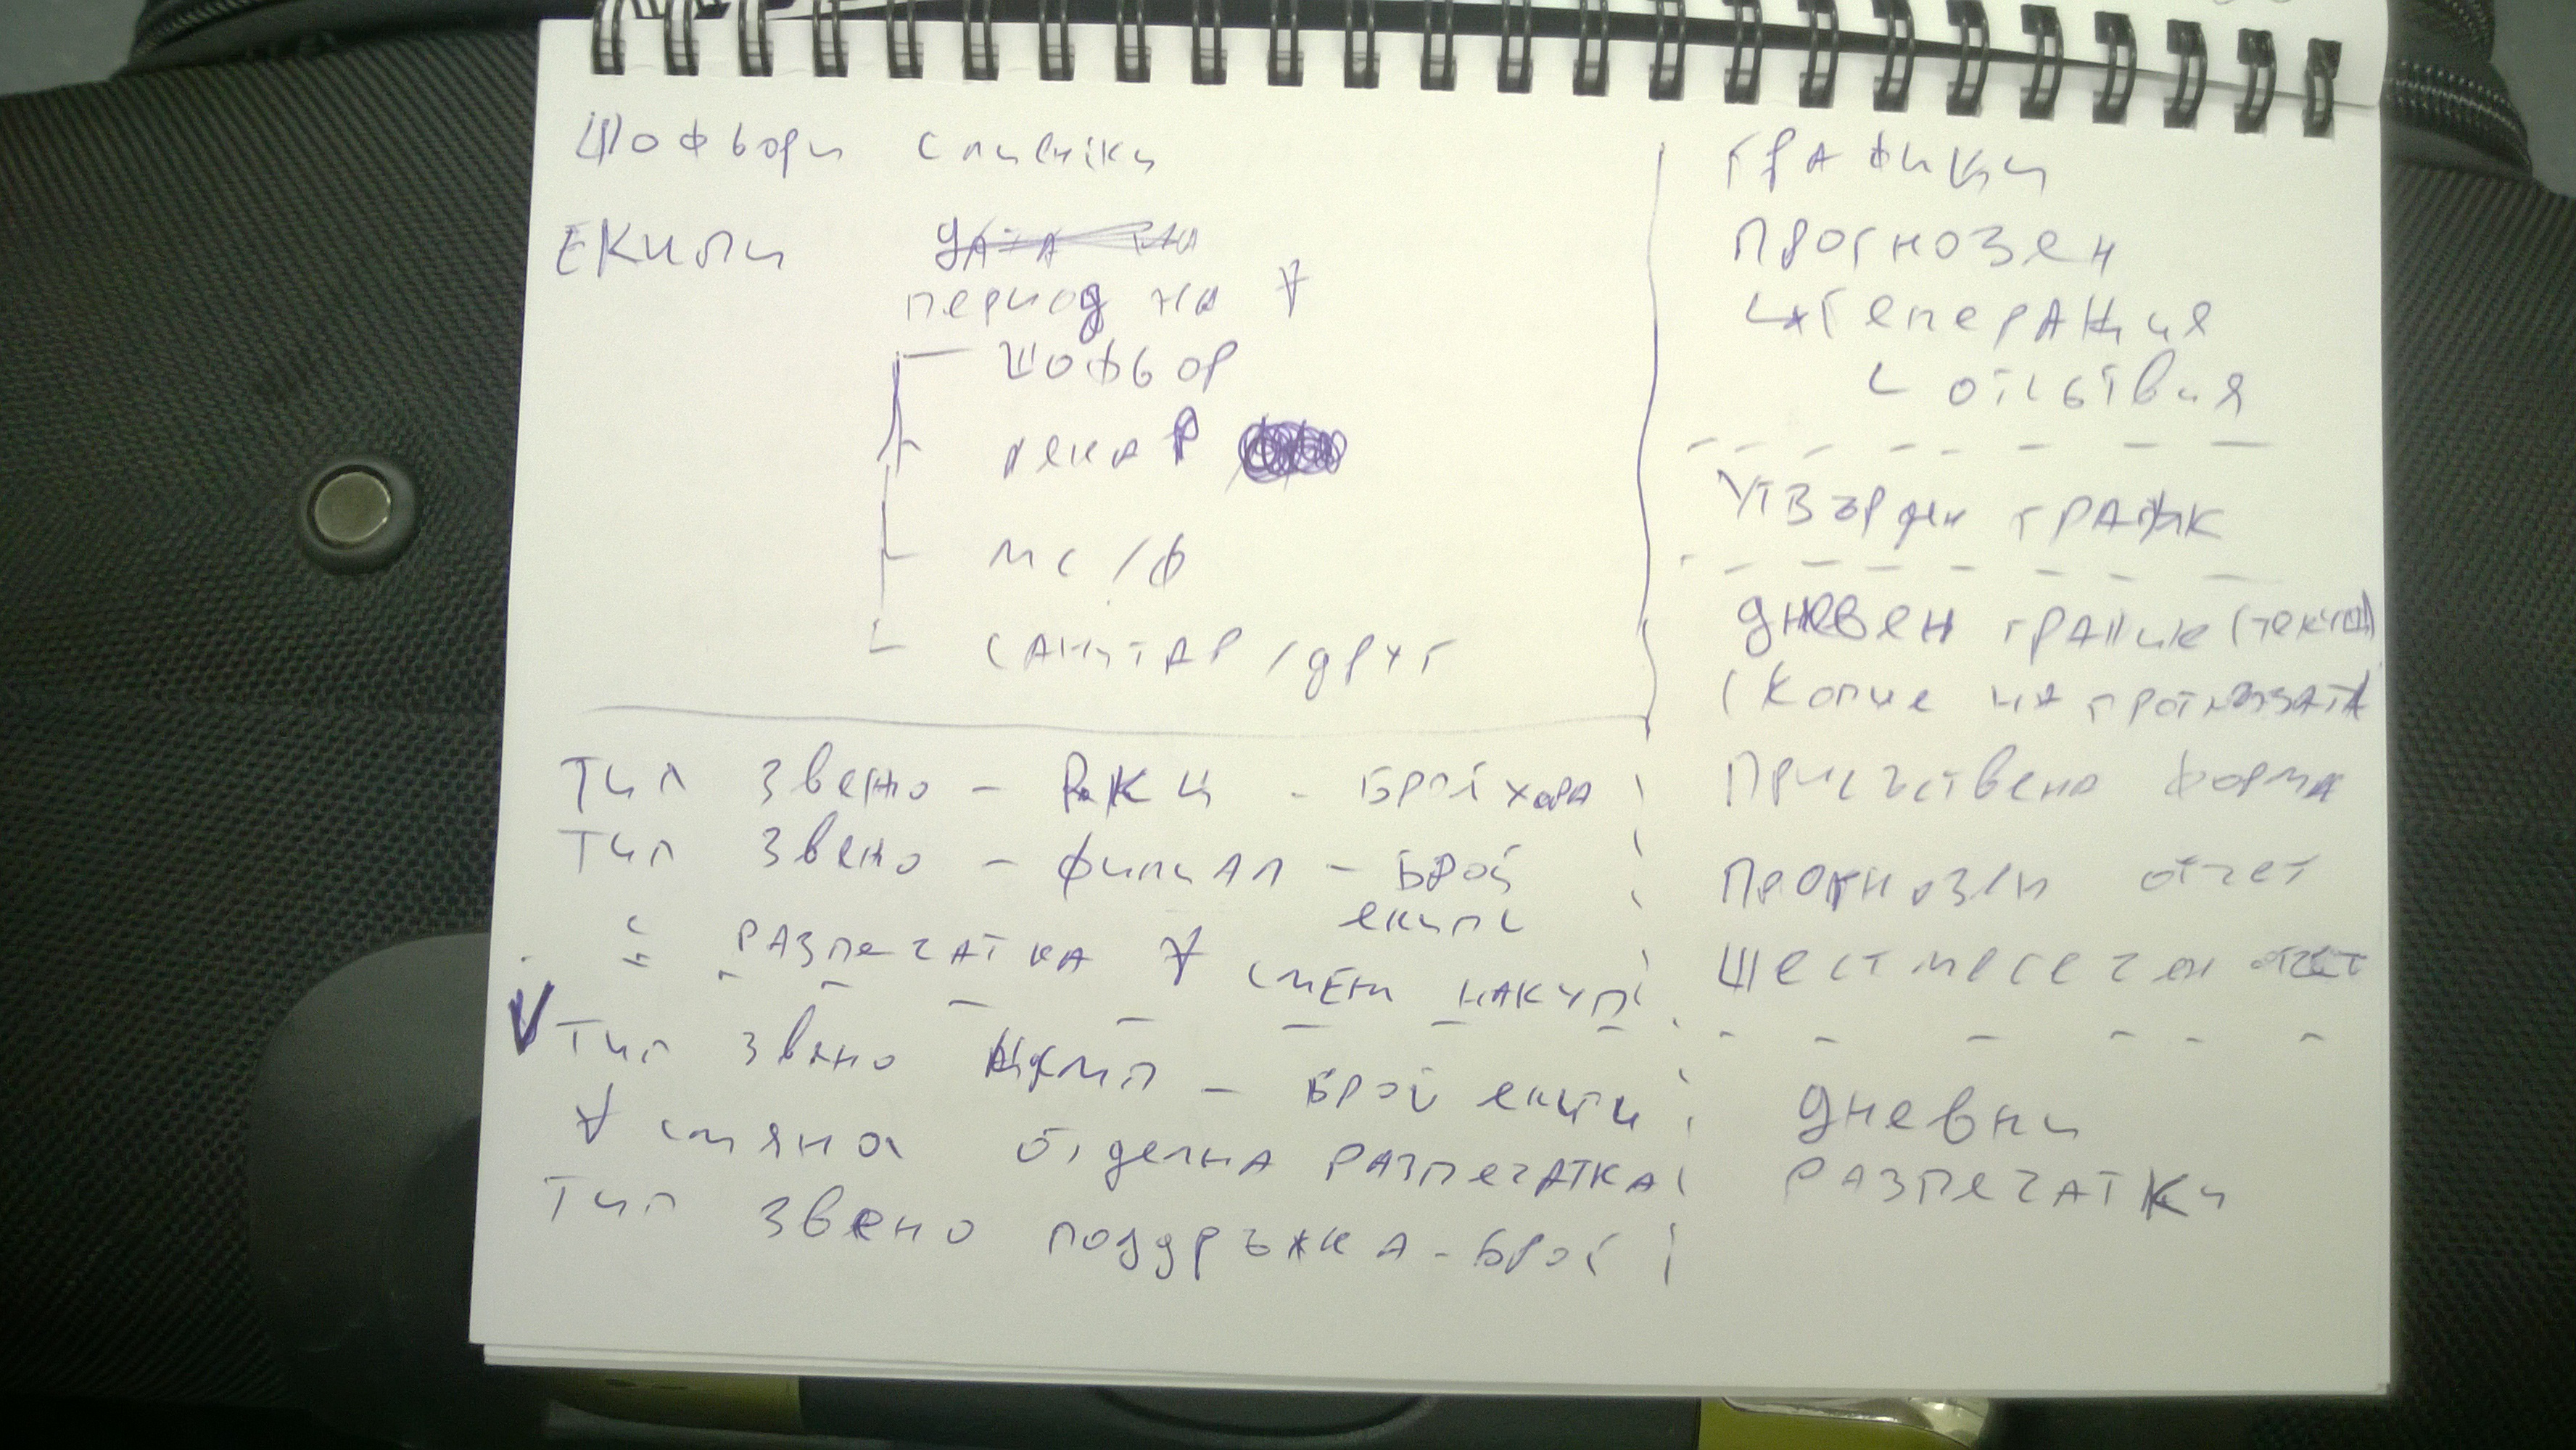 Шофьори
ЕКИПИ
период на ∀
шофьор
лекар
мс / ф
САНИТАР / друг
Тип звено - РКЦ - БРОЙ хора
Тип звено - филиал - БРОЙ
екипи
= РАЗПЕЧАТКА ∀ СМЕНИ НАКУП
V Тип звено ЦСМП - БРОЙ екипи
∀ смяна отделна РАЗПЕЧАТКА
Тип звено поддръжка - БРОЙ
ГРАФИКИ
ПРОГНОЗЕН
Генерация
отсъствия
УТВЪРДЕН ГРАФИК
ДНЕВЕН ГРАФИК (текущ)
(Копие на прогнозата
Присъствена форма
Прогнозен отчет
Шестмесечен отчет
ДНЕВНИ
РАЗПЕЧАТКИ